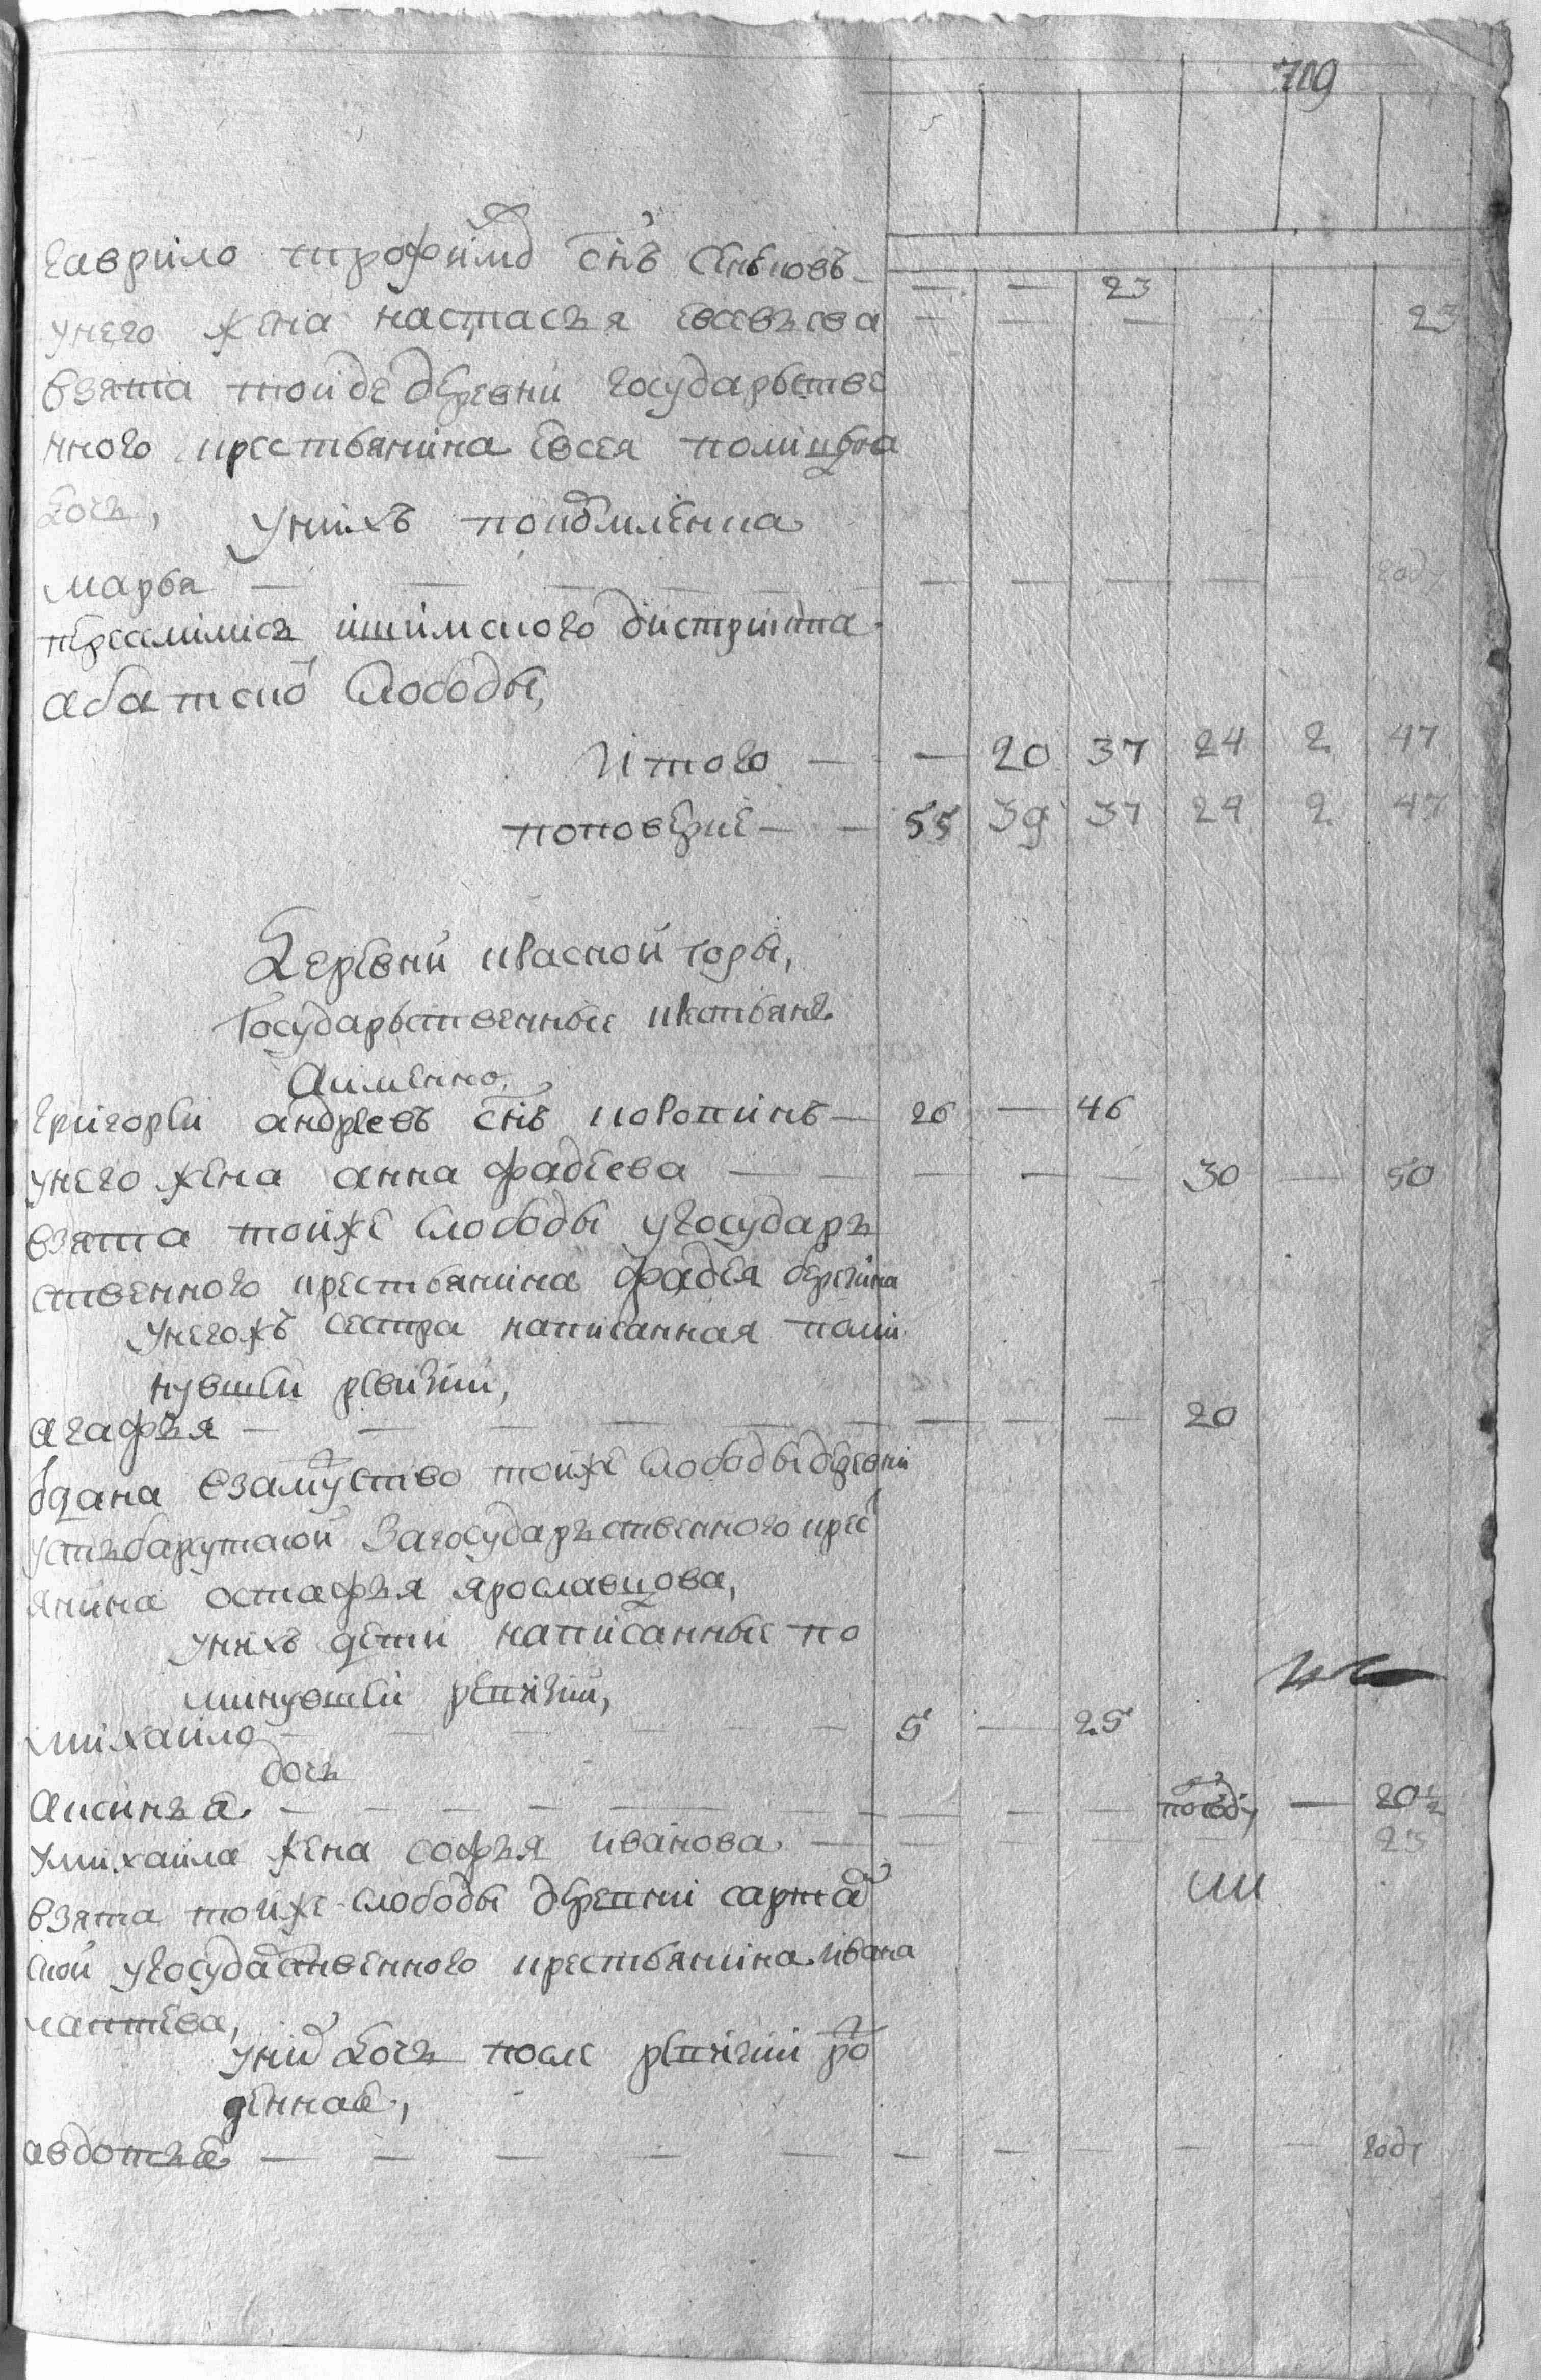 709
гаврило трофимо снъ сеньковъ — — 23
унего жена настасья евсевьева — — — — — 23
взята тойде деревни государьстве
нного крестьянина евсея
дочь, унихъ поколениа
марья — — — — — — — — — году
преселилися ишимского дистрикта
абатско слободы,
Итого — — 20 37 24 2 47
поповерке — — 55 39 37 29 2 47
Деревни красной горы,
Государьственные крстьяне
Аименно,
григорей андреевъ снъ коропинъ — 26 — 46
унего жена анна фадеева — — — — 30 — 50
взята тойже слободы угосударь
ственного крестьянина фадея берегина
унегожъ сестра написанная поми
нувшей ревизии,
агафья — — — — — — — — — 20
одана взамуство тойже слободы деревни
устьбарсутской Загосударьственного крес
янина остафья ярославцова,
унихъ дети написанные по
минувшей ревизии,
михайло — — — — — — 5 — 25
дочь
аксинья — — — — — — — — полгоду — 20½
умихаила жена софья иванова — — — — — 23
взята тойже слободы деревни
ской угосударственного крестьянина ивана
лаптева,
унихъ дочь после ревизии ро
жденная,
авдотья — — — — — — — — — — году